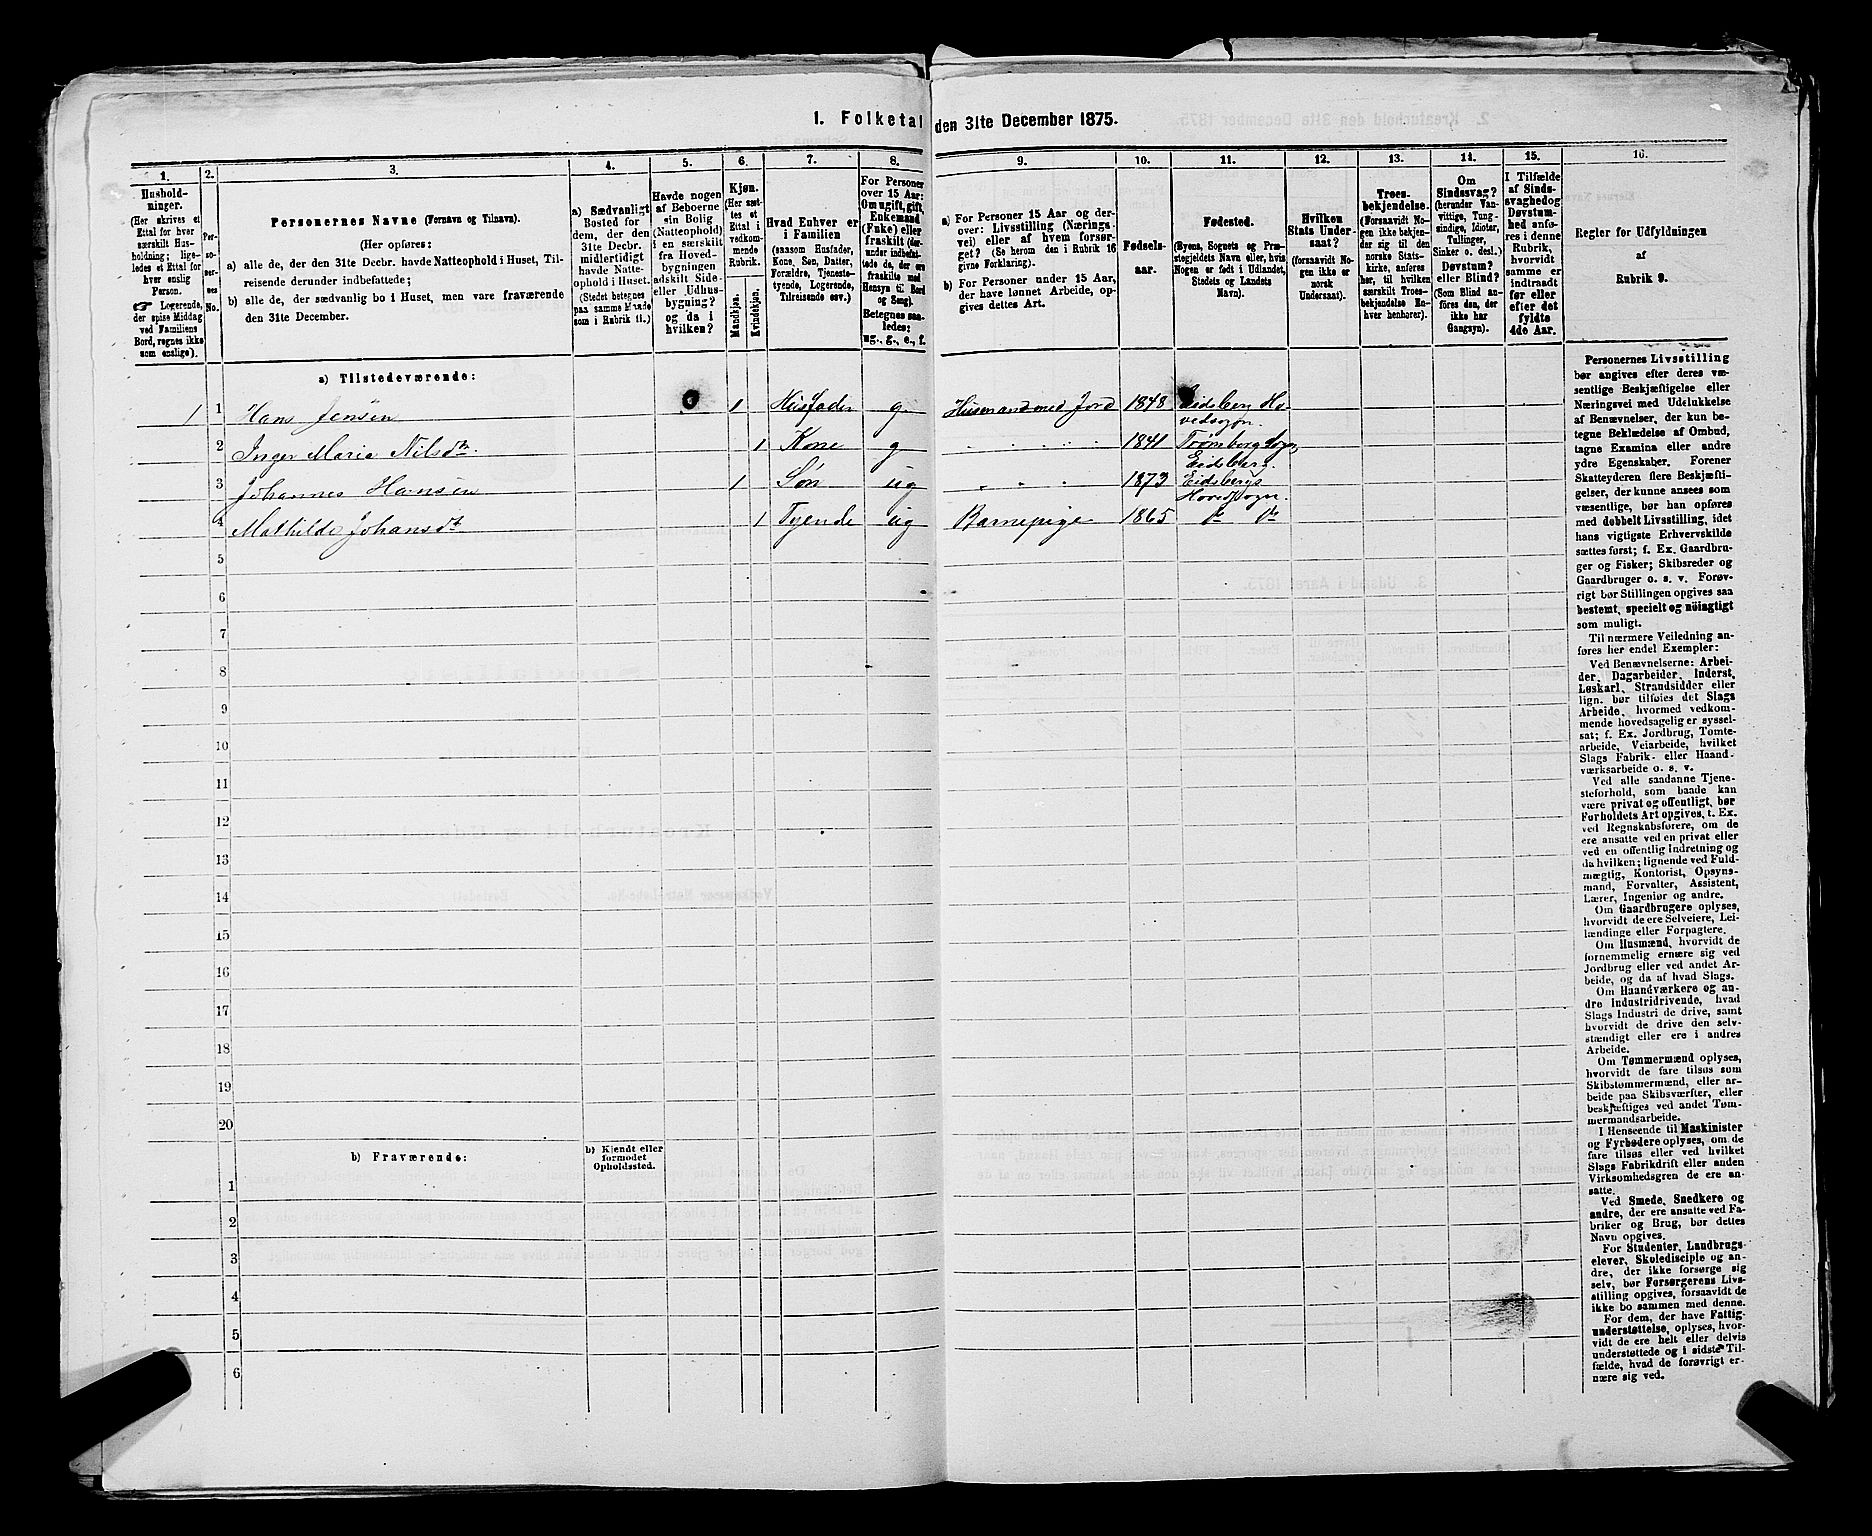 1. Folketal den 31te December 1875.
1.
Hushold-
ninger.
(Her skrives et
Ettal for hver
særskilt Hus-
holdning; lige-
ledes et Ettal for
hver enslig
Person.
☞ Logerende,
der spise Middag
ved Familiens
Bord, regnes ikke
som enslige).
2.
Per-
so-
ner-
nes
No.
3.
Personernes Navne (Fornavn og Tilnavn).
(Her opføres:
a) alle de, der den 31te Decbr. havde Natteophold i Huset, Til-
reisende derunder indbefattede;
b) alle de, der sædvanlig bo i Huset, men vare fraværende
den 31te December.
4.
a) Sædvanligt
Bosted for
dem, der den
31te Decbr.
midlertidigt
havde Natte-
ophold i Huset.
(Stedet betegnes
paa samme Maade
som i Rubrik 11.)
5.
Havde nogen
af Beboerne
sin Bolig
(Natteophold)
i en særskilt
fra Hoved-
bygningen
adskilt Side-
eller Udhus-
bygning?
og da i
hvilken?
6.
Kjøn.
(Her sæt-
tes et
Ettal i
vedkom-
mende
Rubrik.
Mandkjøn.
Kvindekjøn.
7.
Hvad Enhver er
i Familien
(saasom Husfader,
Kone, Søn, Datter,
Forældre, Tjeneste-
tyende, Logerende,
Tilreisende osv.)
8.
For Personer
over 15 Aar:
Om ugift, gift,
Enkemand
(Enke) eller
fraskilt (der-
under indbefat-
tede de, der ere
fraskilte med
Hensyn til Bord
og Seng).
Betegnes saa-
ledes:
ug., g., e., f.
9.
a) For Personer 15 Aar og der-
over: Livsstilling (Nærings-
vei) eller af hvem forsør-
get? (Se herom den i Rubrik 16
givne Forklaring).
b) For Personer under 15 Aar,
der have lønnet Arbeide, op-
gives dettes Art.
10.
Fødsels-
aar.
11.
Fødested.
(Byens, Sognets og Præ-
stegjeldets Navn eller, hvis
Nogen er født i Udlandet,
Stedets og Landets
Navn).
12.
Hvilken
Stats Under-
saat?
(forsaavidt No-
gen ikke er
norsk
Undersaat).
13.
Troes-
bekjendelse.
(Forsaavidt No-
gen ikke bekjen-
der sig til den
norske Stats-
kirke, anføres
her, til hvilken
særskilt Troes-
bekjendelse En-
hver henhører).
14.
Om
Sindssvag?
(herunder Van-
vittige, Tung-
sindige, Idioter,
Tullinger,
Sinker o. desl.)
Døvstum?
eller Blind?
(Som Blind an-
føres den, der
ikke har
Gangsyn).
15.
I Tilfælde
af Sinds-
svaghed og
Døvstum-
hed anfø-
res i denne
Rubrik,
hvorvidt
samme er
indtraadt
før eller
efter det
fyldte
4de Aar.
16.
Regler for Udfyldningen
af
Rubrik 9.
a) Tilstedeværende:
1 1 Hans Jensen 1 Husfader g. Husmand med Jord 1848 Eidsberg Ho-
vedsogn.
2 Inger Maria Nilsdtr. 1 Kone g " " " " 1841 Trømborg Sogn,
Eidsberg.
3 Johannes Hansen 1 Søn ug " " " 1873 Eidsbergs
Hovedsogn.
4 Mathilde Johansdtr 1 Tyende ug Barnepige 1865 do do
5
6
7
8
9
10
11
12
13
14
15
16
17
18
19
20
b) Fraværende:
b) Kjendt eller
formodet
Opholdssted.
1
2
3
4
5
6
Personernes Livsstilling
bør angives efter deres væ-
sentlige Beskjæftigelse eller
Næringsvei med Udelukkelse
af Benævnelser, der kun be-
tegne Beklædelse af Ombud,
tagne Examina eller andre
ydre Egenskaber. Forener
Skatteyderen flere Beskjæfti-
gelser, der kunne ansees som
væsentlige, bør han opføres
med dobbelt Livsstilling, idet
hans vigtigste Erhvervskilde
sættes først; f. Ex. Gaardbru-
ger og Fisker; Skibsreder og
Gaardbruger o. s. v. Forøv-
rigt bør Stillingen opgives saa
bestemt, specielt og nöiagtigt
som muligt.
Til nærmere Veiledning an-
føres her endel Exempler:
Ved Benævnelserne: Arbei-
der, Dagarbeider, Inderst,
Løskarl, Strandsidder eller
lign. bør tilføies det Slags
Arbeide, hvormed vedkom-
mende hovedsagelig er syssel-
sat; f. Ex. Jordbrug, Tomte-
arbeide, Veiarbeide, hvilket
Slags Fabrik- eller Haand-
værksarbeide o. s. v.
Ved alle saadanne Tjene-
steforhold, som baade kan
være privat og offentligt, bør
Forholdets Art opgives, t. Ex.
ved Regnskabsførere, om de
ere ansatte ved en privat eller
ved en offentlig Indretning og
da hvilken; lignende ved Fuld-
mægtig, Kontorist, Opsyns-
mand, Forvalter, Assistent,
Lærer, Ingeniør og andre.
Om Gaardbrugere oplyses,
hvorvidt de ere Selveiere, Lei-
lændinge eller Forpagtere.
Om Husmænd, hvorvidt de
fornemmelig ernære sig ved
Jordbrug eller ved andet Ar-
beide, og da af hvad Slags.
Om Haandværkere og an-
dre Industridrivende, hvad
Slags Industri de drive, samt
hvorvidt de drive den selv-
stændigt eller ere i andres
Arbeide.
Om Tømmermænd oplyses,
hvorvidt de fare tilsøs som
Skibstømmermænd, eller ar-
beide paa Skibsværfter, eller
beskjæftiges ved andet Tøm-
mermandsarbeide.
I Henseende til Maskinister
og Fyrbødere oplyses, om de
fare tilsøs eller ved hvilket
Slags Fabrikdrift eller anden
Virksomhedsgren de ere an-
satte.
Ved Smede, Snedkere og
andre, der ere ansatte ved Fa-
briker og Brug, bør dettes
Navn opgives.
For Studenter, Landbrugs-
elever, Skoledisciple og an-
dre, der ikke forsørge sig
selv, bør Forsørgerens Livs-
stilling opgives, forsaavidt de
ikke bo sammen med denne.
For dem, der have Fattig-
understøttelse, oplyses, hvor-
vidt de ere helt eller delvis
understøttede og i sidste Til-
fælde, hvad de forøvrigt er-
nære sig ved.